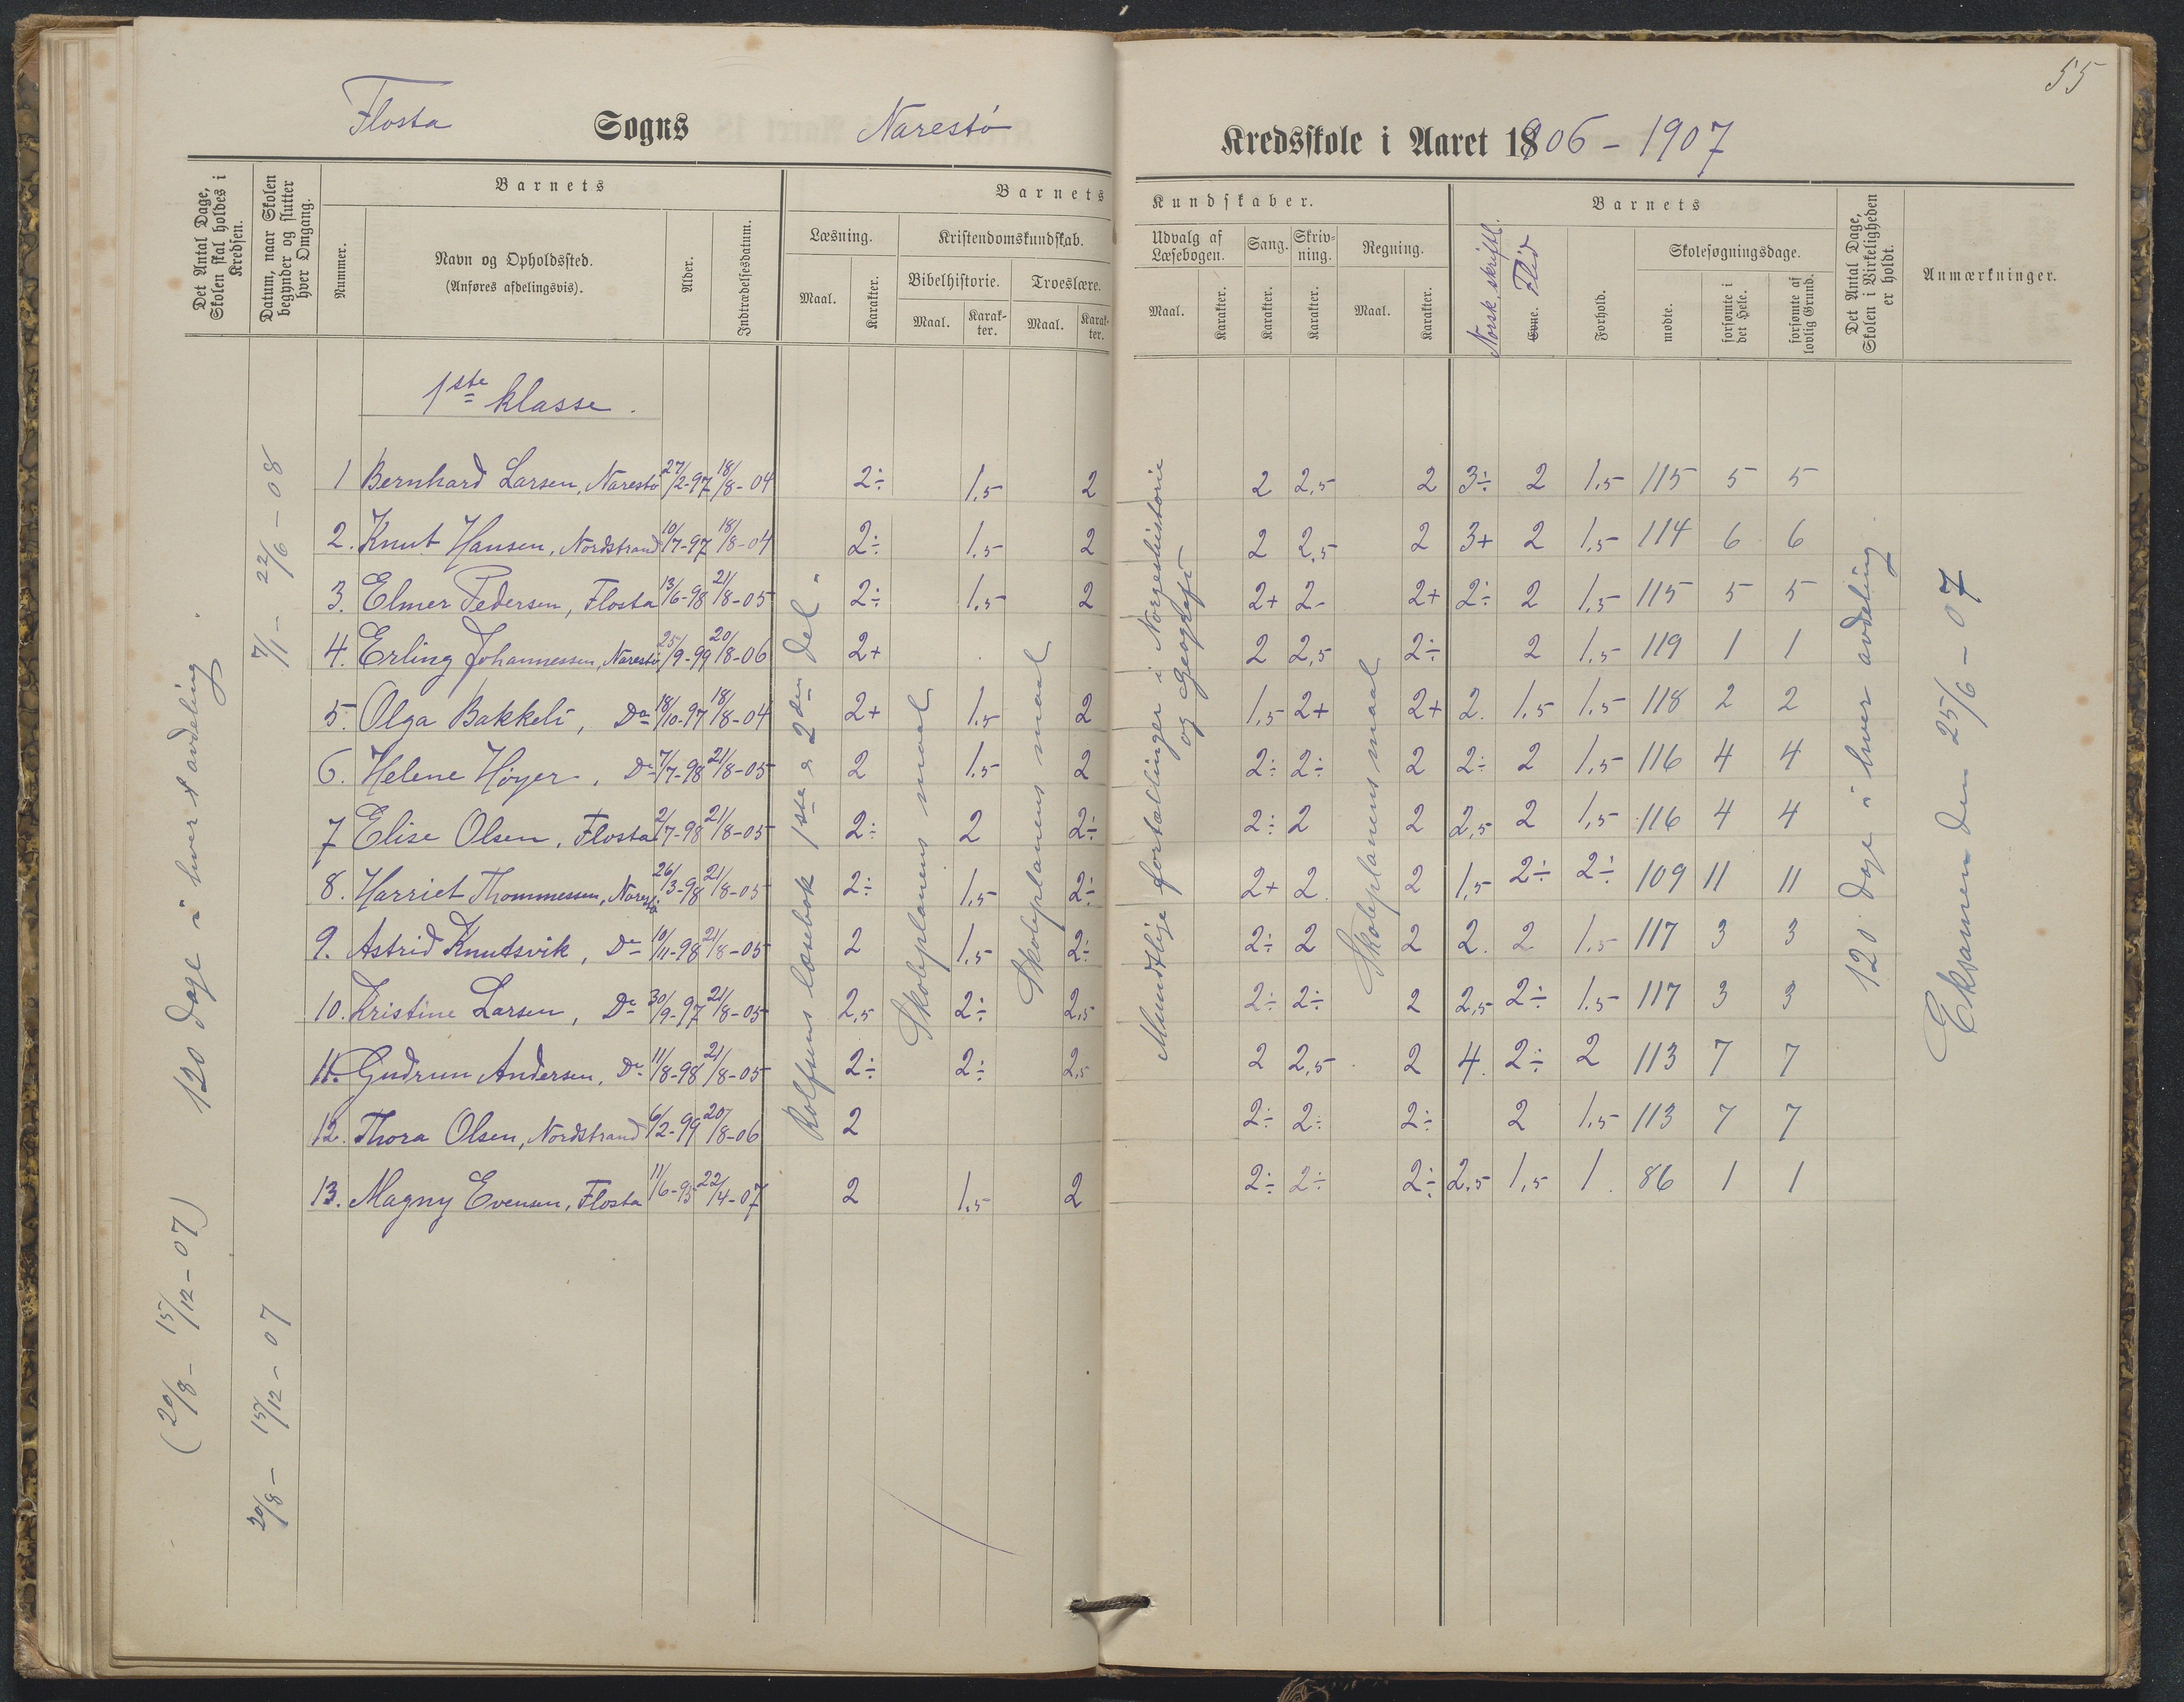 55
Flosta Sogns Narestö Kredsskole i Aaret 1906 - 1907
Det Antal Dage, Skolen skal holdes i Kredsen.
Datum, naar Skolen begynder og slutter hver Omgang.
Barnets
Nummer.
Navn og Opholdssted.
(Anføres afdelingsvis).
Alder.
Indtrædelsesdatum.
Barnets Kundskaber.
Læsning.
Maal.
Karakter.
Kristendomskundskab.
Bibelhistorie.
Maal.
Karakter.
Troeslære.
Maal.
Karakter.
Udvalg af Læsebogen.
Maal.
Karakter.
Sang.
Karakter.
Skrivning.
Karakter.
Regning.
Maal.
Karakter.
Norsk, skriftl.
Barnets
Evne. Flid
Forhold.
Skolesøgningsdage.
mødte.
forsømte i det Hele.
forsømte af lovlig Grund.
Det Antal Dage, Skolen i Virkeligheden er holdt.
Anmærkninger.
1ste klasse.
1 Bernhard Larsen, Narestö 27/2-97 18/8-04 2÷ 1,5 2 2 2,5 2 3÷ 2 1,5 115 5 5
2. Knut Hansen, Nordstrand 10/7-97 18/8-04 2÷ 1,5 2 2 2,5 2 3+ 2 1,5 114 6 6
3. Elmer Pedersen, Flosta 13/6-98 21/8-05 2÷ 1,5 2 2+ 2- 2+ 2÷ 2 1,5 115 5 5
4. Erling Johannessen, Narestö 25/9-99 20/8-06 2+ 2 2,5 2÷ 2 1,5 119 1 1
5. Olga Bakkeli, Do 18/10-97 18/8-04 2+ 1,5 2 1,5 2+ 2+ 2. 1,5 1,5 118 2 2
6. Helene Höyer, Do 7/7-98 21/8-05 2 1,5 2 2÷ 2÷ 2 2÷ 2 1,5 116 4 4
7 Elise Olsen, Flosta 2/7-98 21/8-05 2÷ 2 2÷ 2÷ 2 2 2,5 2 1,5 116 4 4
8. Harriet Thommessen, Narestö 26/3-98 21/8-05 2÷ 1,5 2÷ 2+ 2. 2 1,5 2÷ 2÷ 109 11 11
9. Astrid Knutsvik, Do 10/11-98 21/8-05 2 1,5 2÷ 2÷ 2 2 2. 2 1,5 117 3 3
10. Kristine Larsen, Do 30/9-97 21/8-05 2,5 2÷ 2,5 2÷ 2÷ 2 2,5 2÷ 1,5 117 3 3
11. Gudrun Andersen, Do 11/8-98 21/8-05 2÷ 2÷ 2,5 2 2,5 2 4. 2÷ 2 113 7 7
12. Thora Olsen, Nordstrand 6/2-99 20/8-06 2 2÷ 2÷ 2÷ 2 1,5 113 7 7
13. Magny Evensen, Flosta 11/6-95 22/4-07 2 1,5 2 2÷ 2÷ 2÷ 2,5 1,5 1. 86 1 1
(20/8 - 15/12 - 07) 120 dage i hver avdeling.
20/8 - 15/12 - 07 7/1 - 22/6 - 08
Rolfsens læsebok 1ste & 2den del
Skoleplanens maal
Skoleplanens maal
Mundtlige fortællinger i Norgeshistorie og geografi
Skoleplanens maal
120 dage i hver avdeling
Eksamen den 25/6 - 07